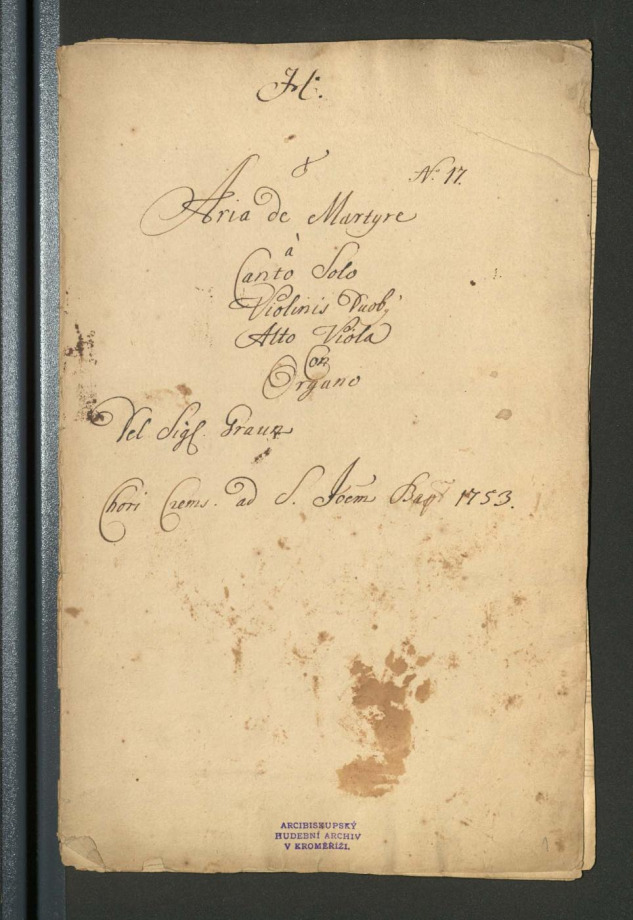 N: 17.
Aria de Martyre
à
Canto Solo
Violinis Duobq
Alto Viola
Con
Organo
Del Sigl. Graun
Chori Crems. ad S. Joem Bapt 1753.
ARCIBISKUPSKÝ
HUDEBNÍ ARCHIV
V KROMĚŘÍŽI.